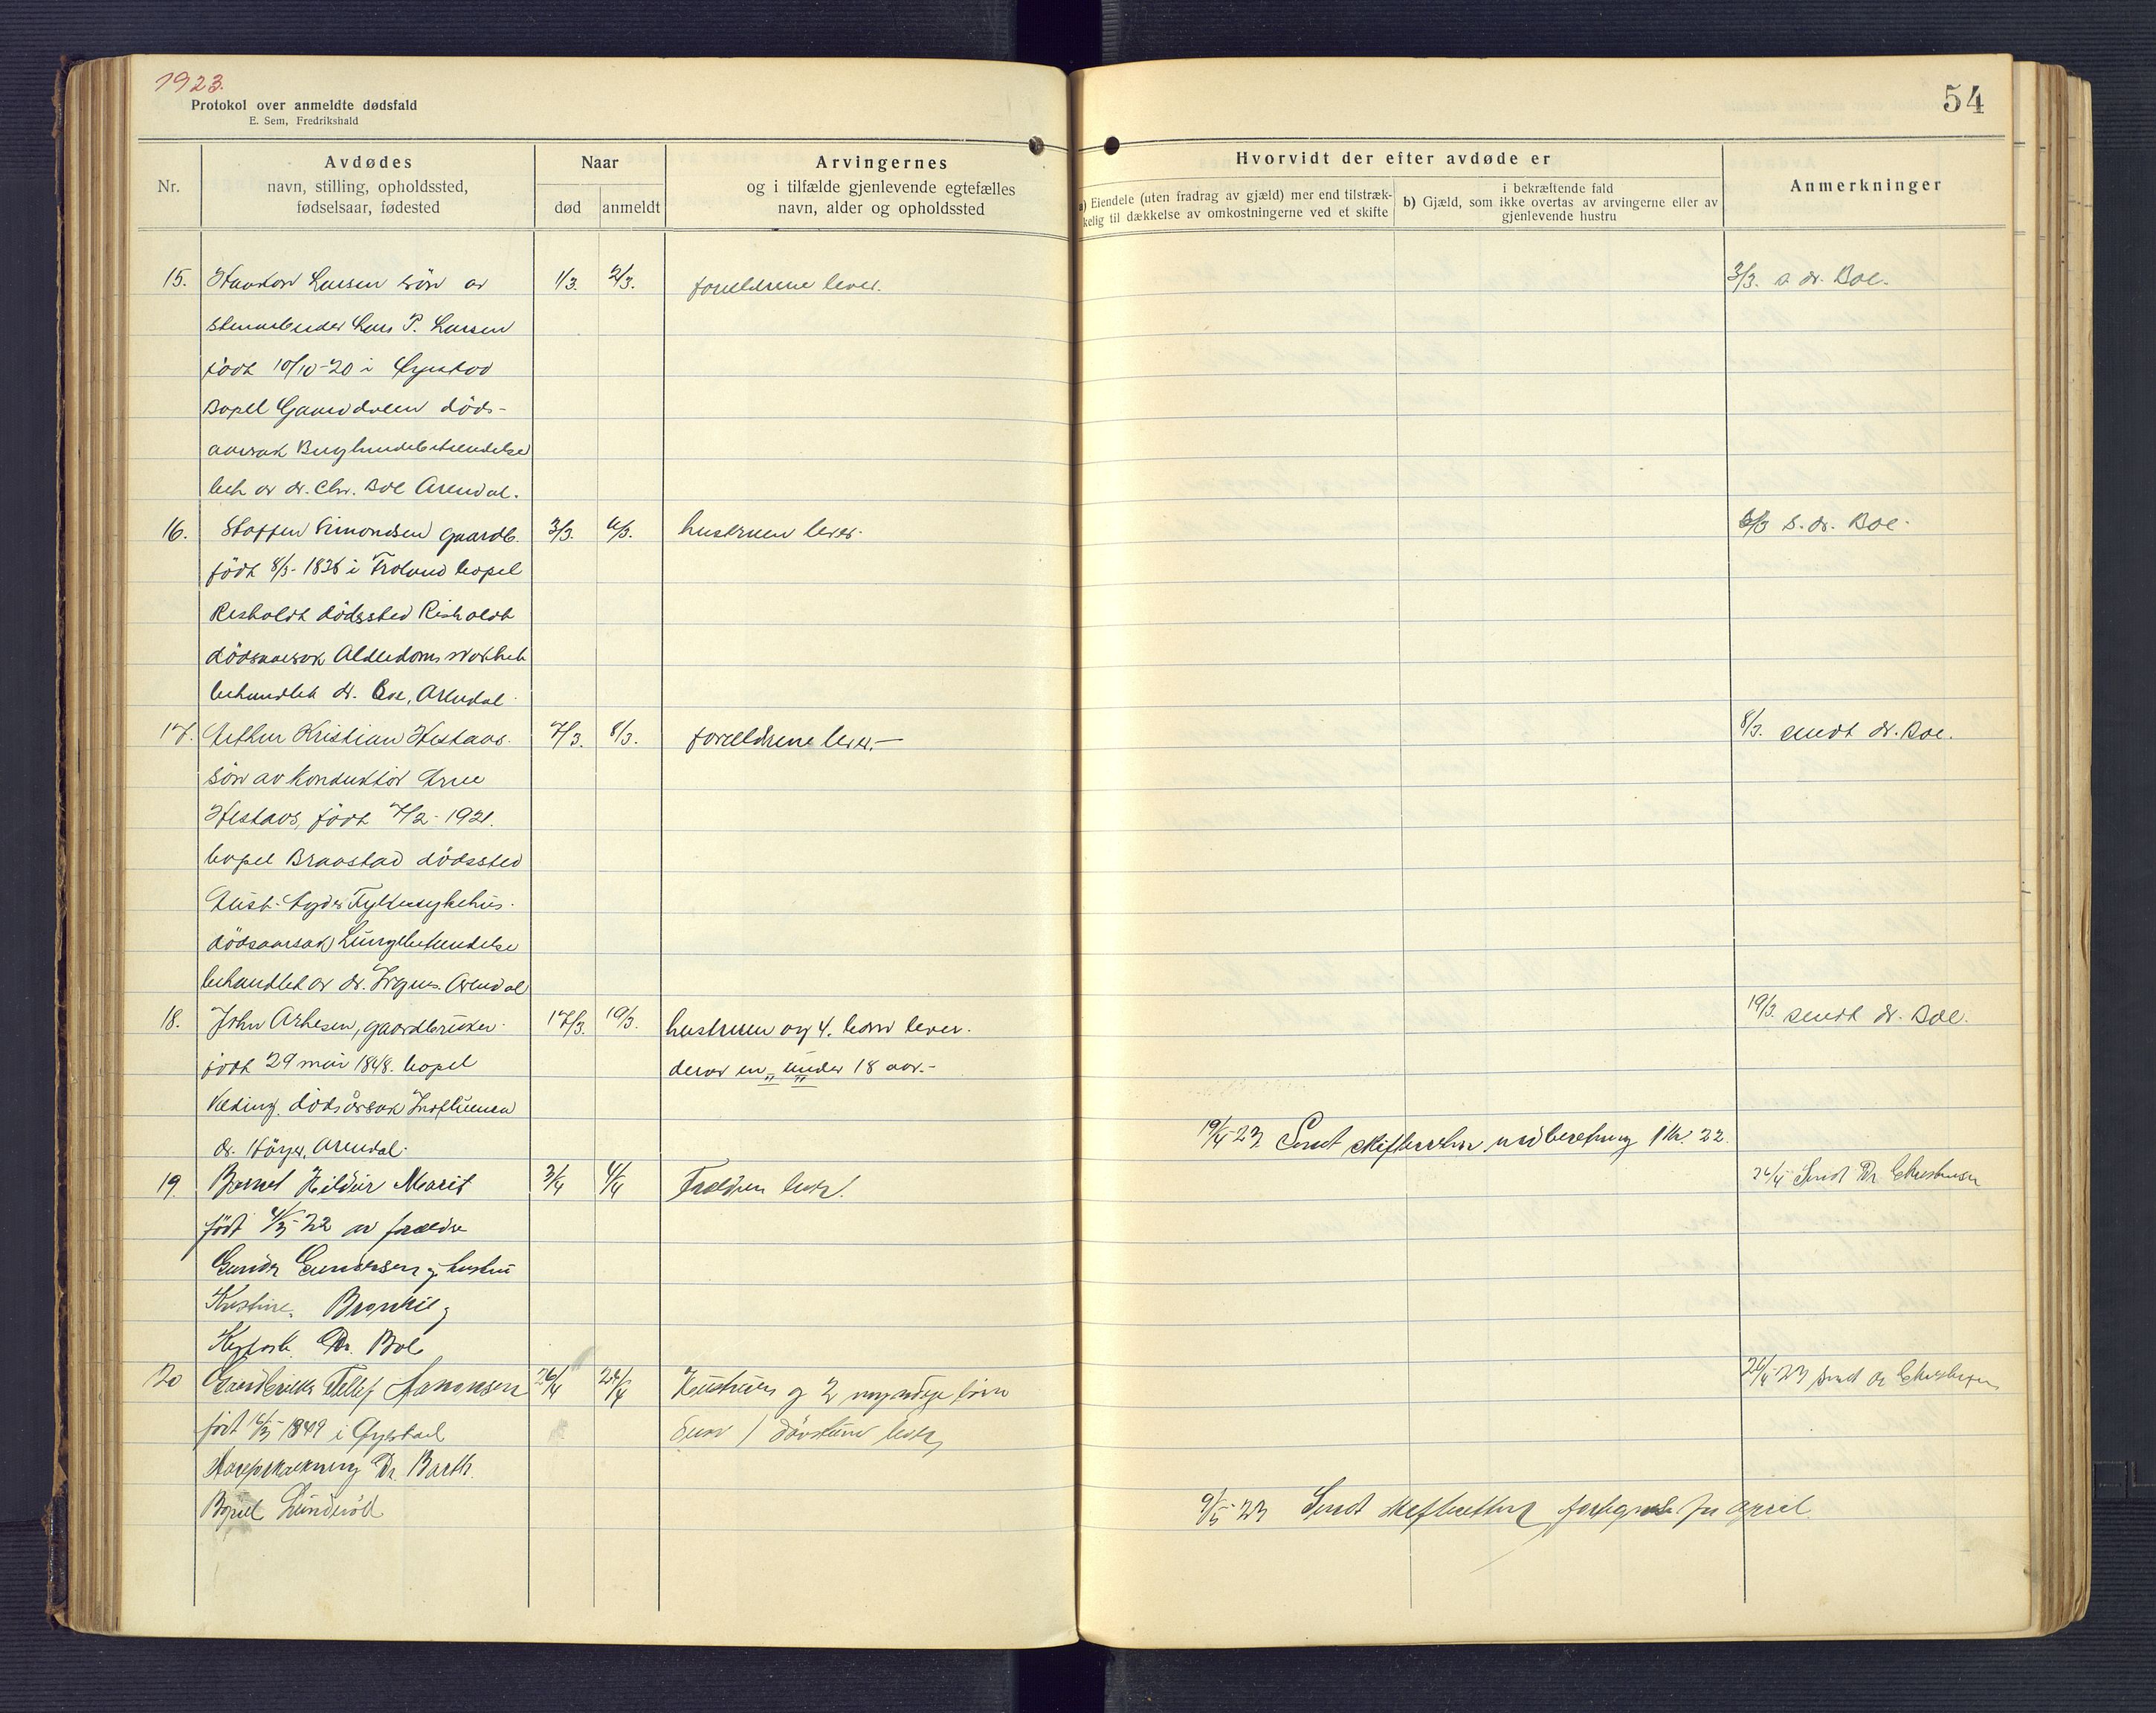 1923.
Protokol over anmeldte dødsfald
E. Sem, Fredrikshald
54
Nr.
Avdødes
navn, stilling, opholdssted,
fødselsaar, fødested
Naar
død
anmeldt
Arvingernes
og i tilfælde gjenlevende egtefælles
navn, alder og opholdssted
Hvorvidt der efter avdøde er
a) Eiendele (uten fradrag av gjæld) mer end tilstræk-
kelig til dækkelse av omkostningerne ved et skifte
i bekræftende fald
b) Gjæld, som ikke overtas av arvingerne eller av
gjenlevende hustru
Anmerkninger
15. Larsen sön av 1/3. 2/3. forældrene lever. 3/3. s dr. Boe.
Stenarbeider Lars P. Larsen
födt 10/10-20 i Öyestad
Bopel döds-
aarsak
beh av dr. Chr. Boe Arendal.
16. Staffen Simondsen gaardb. 3/3. 6/3. hustruen lever. 6/3 s. dr. Boe.
födt 8/3- 1836 i Froland bopel
Risholdt dödssted Risholdt
dödsaarsak Alderdoms svakhet
behandlet dr. Boe, Arendal.
17. Arthur Kristian Hestaas. 7/3. 8/3. forældrene lever.— 8/3. sendt dr. Boe.
sön av Konduktör Arne
Hestaas, födt 7/2- 1921.
bopel Braastad dödssted
Aust-Agder Fylkessykehus.
dödsaarsak Lungebetendelse
behandlet av dr. Arendal
18. John gaardbruker. 17/3. 19/3. hustruen og 4. barn lever. 19/3. sendt dr. Boe.
födt 29 mai 1848. bopel derav en under 18 aar.-
dödsårsak Influensa
dr. Höyer, Arendal.
19/4-23 Sendt skifteretten indberetning 1 Kv. 22.
19. Barnet Hildur Marit 3/4 4/4 Forældren lever. Sendt Dr. Christensen
född 4/3-22 av forældre
Gunder Gundersen og hustru
Kristine. Bronkit og
Dr. Boe
20 Gaardbruker Tellef 26/4 26/4 Hustruen og 2 myndige börn 26/4-23 sendt dr Christensen
födt 16/3 1849 i Öyestad lever
Dr. Barth.
Bopæl Lunderöd
9/5-23 Sendt skifteretten fortegnelse for april.